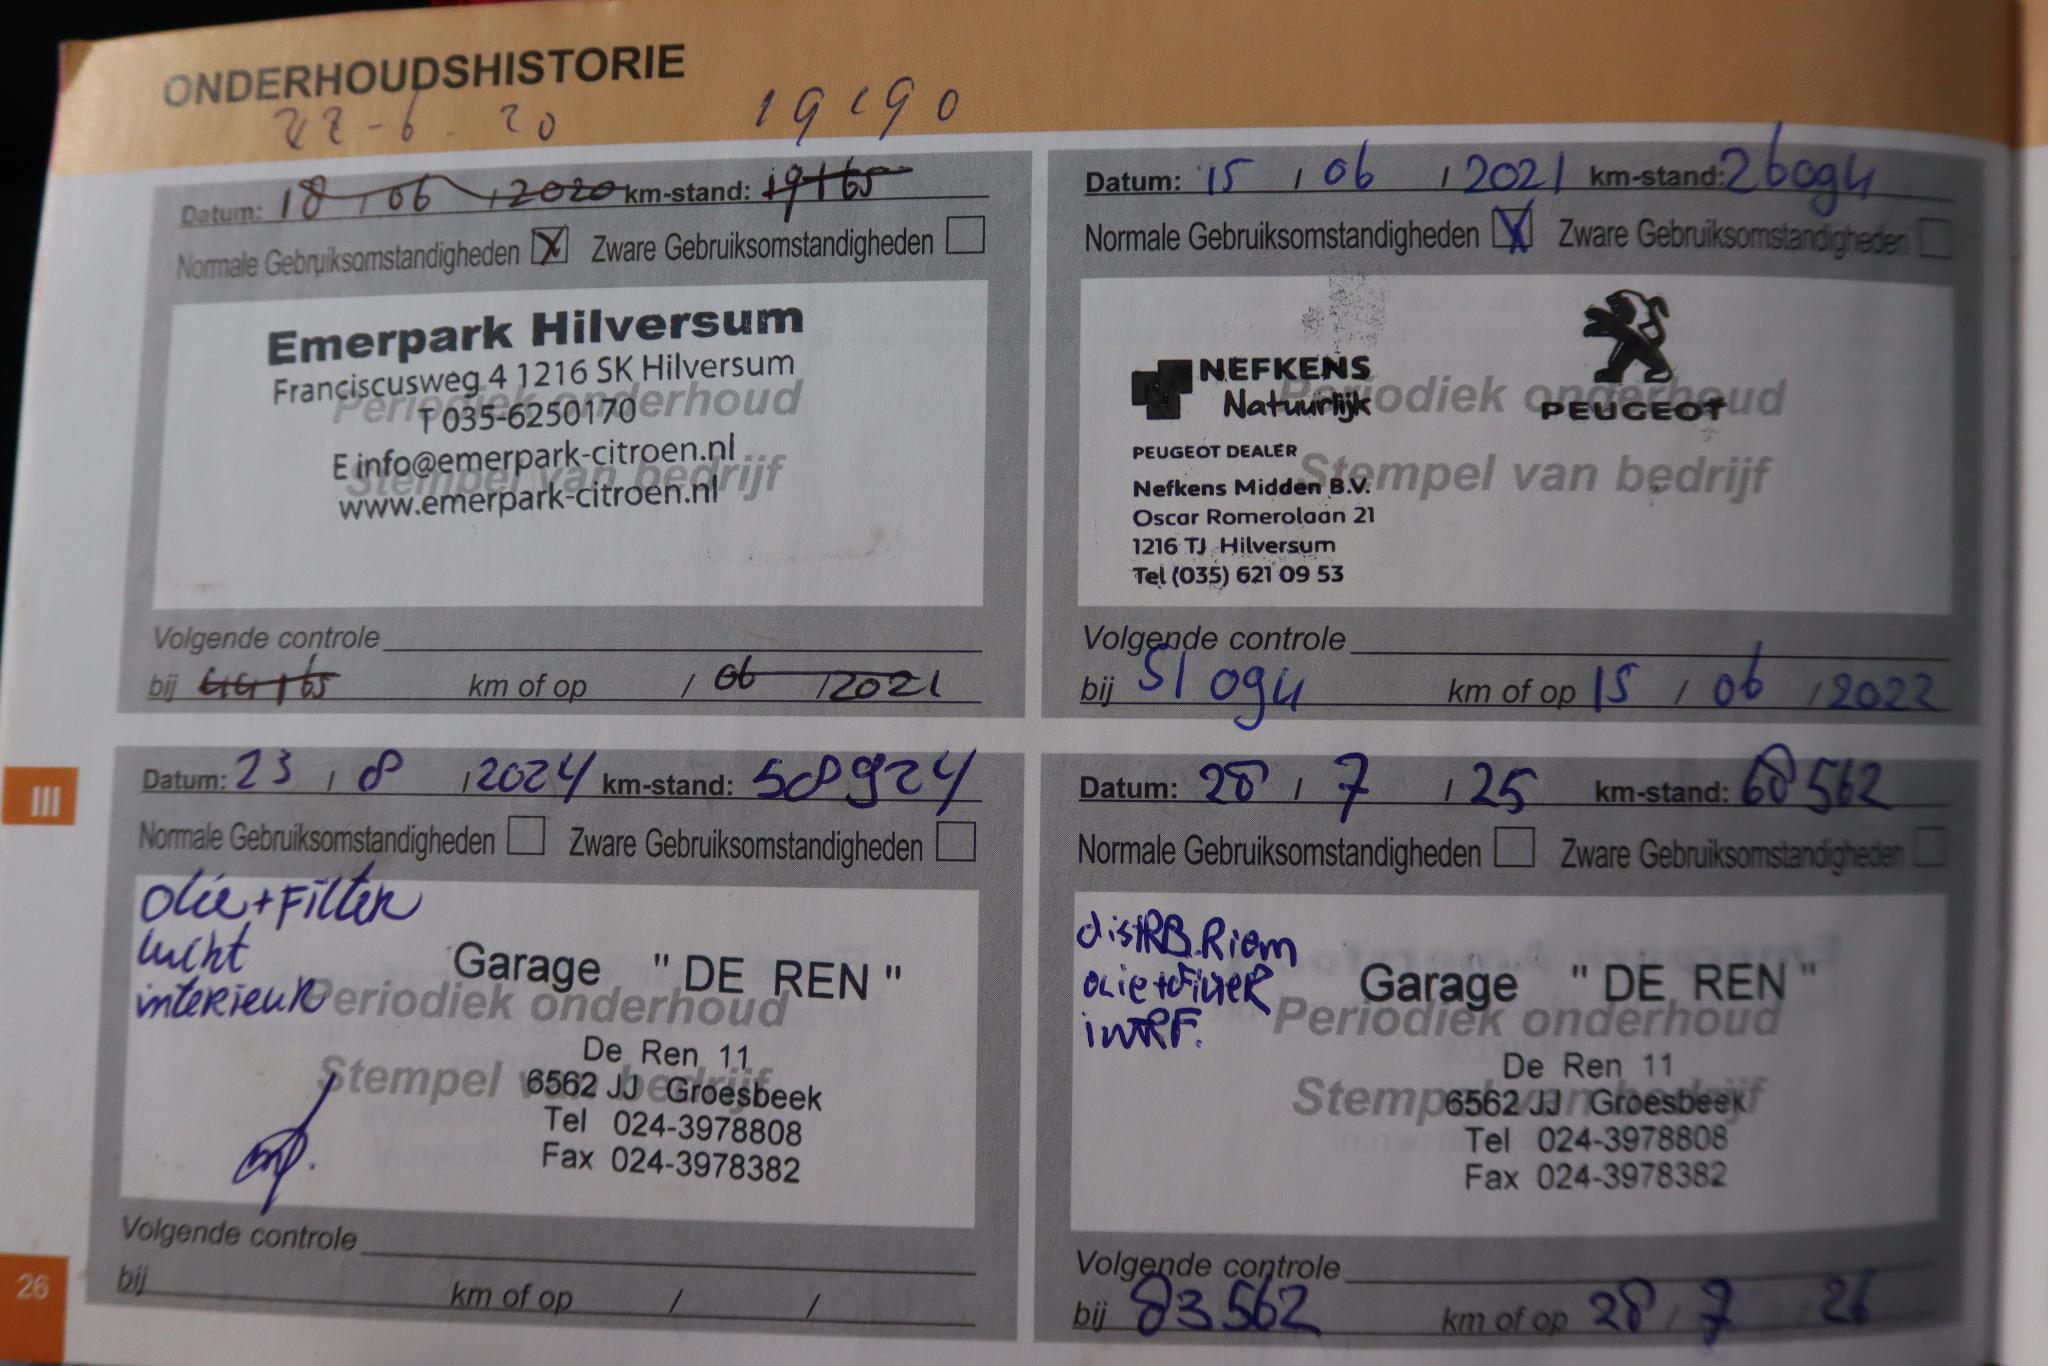 ONDERHOUDSHISTORIE
22-6-20 19190
Datum: 18 / 06 / 2020 km-stand: 19165
Normale Gebruiksomstandigheden X Zware Gebruiksomstandigheden
Emerpark Hilversum
Franciscusweg 4 1216 SK Hilversum
Periodiek onderhoud
T 035-6250170
E info@emerpark-citroen.nl
Stempel van bedrijf
www.emerpark-citroen.nl
Volgende controle
bij 44165 km of op / 06 / 2021
Datum: 15 / 06 / 2021 km-stand: 26094
Normale Gebruiksomstandigheden X Zware Gebruiksomstandigheden
NEFKENS
Natuurlijk
PEUGEOT
Periodiek onderhoud
PEUGEOT DEALER
Stempel van bedrijf
Nefkens Midden B.V.
Oscar Romerolaan 21
1216 TJ Hilversum
Tel (035) 621 09 53
Volgende controle
bij 51094 km of op 15 / 06 / 2022
Datum: 23 / 8 / 2024 km-stand: 58924
Normale Gebruiksomstandigheden Zware Gebruiksomstandigheden
olie+Filter
lucht
interieur
Garage "DE REN"
Periodiek onderhoud
De Ren 11
Stempel van bedrijf
6562 JJ Groesbeek
Tel 024-3978808
Fax 024-3978382
Volgende controle
bij km of op / /
Datum: 28 / 7 / 25 km-stand: 68562
Normale Gebruiksomstandigheden Zware Gebruiksomstandigheden
distRB.Riem
olie+Filter
intRF.
Garage "DE REN"
Periodiek onderhoud
De Ren 11
Stempel van bedrijf
6562 JJ Groesbeek
Tel 024-3978808
Fax 024-3978382
Volgende controle
bij 83562 km of op 28 / 7 / 26
III
26